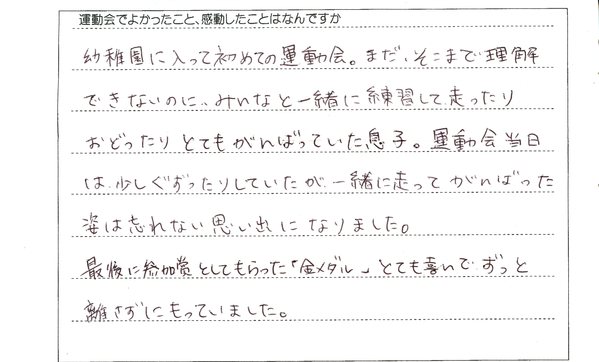 運動会でよかったこと、感動したことはなんですか
幼稚園に入って初めての運動会。まだ、そこまで理解
できないのに、みんなと一緒に練習して走ったり
おどったりとてもがんばっていた息子。運動会当日
は、少しぐずったりしていたが、一緒に走ってがんばった
姿は忘れない思い出になりました。
最後に参加賞としてもらった「金メダル」とても喜いでずっと
離さずにもっていました。